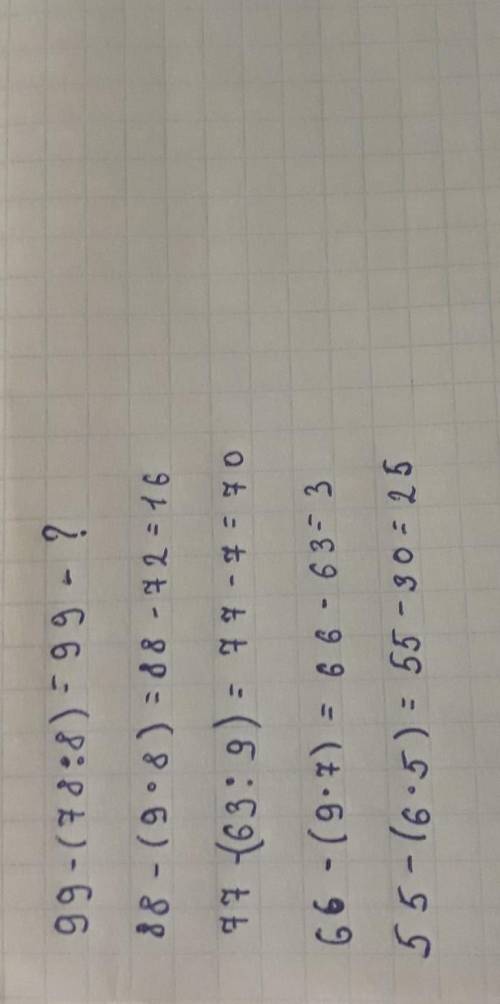 99 - (78:8) = 99 - ?
88 - (9 · 8) = 88 - 72 = 16
77 - (63 : 9) = 77 - 7 = 70
66 - (9 · 7) = 66 - 63 = 3
55 - (6 · 5) = 55 - 30 = 25